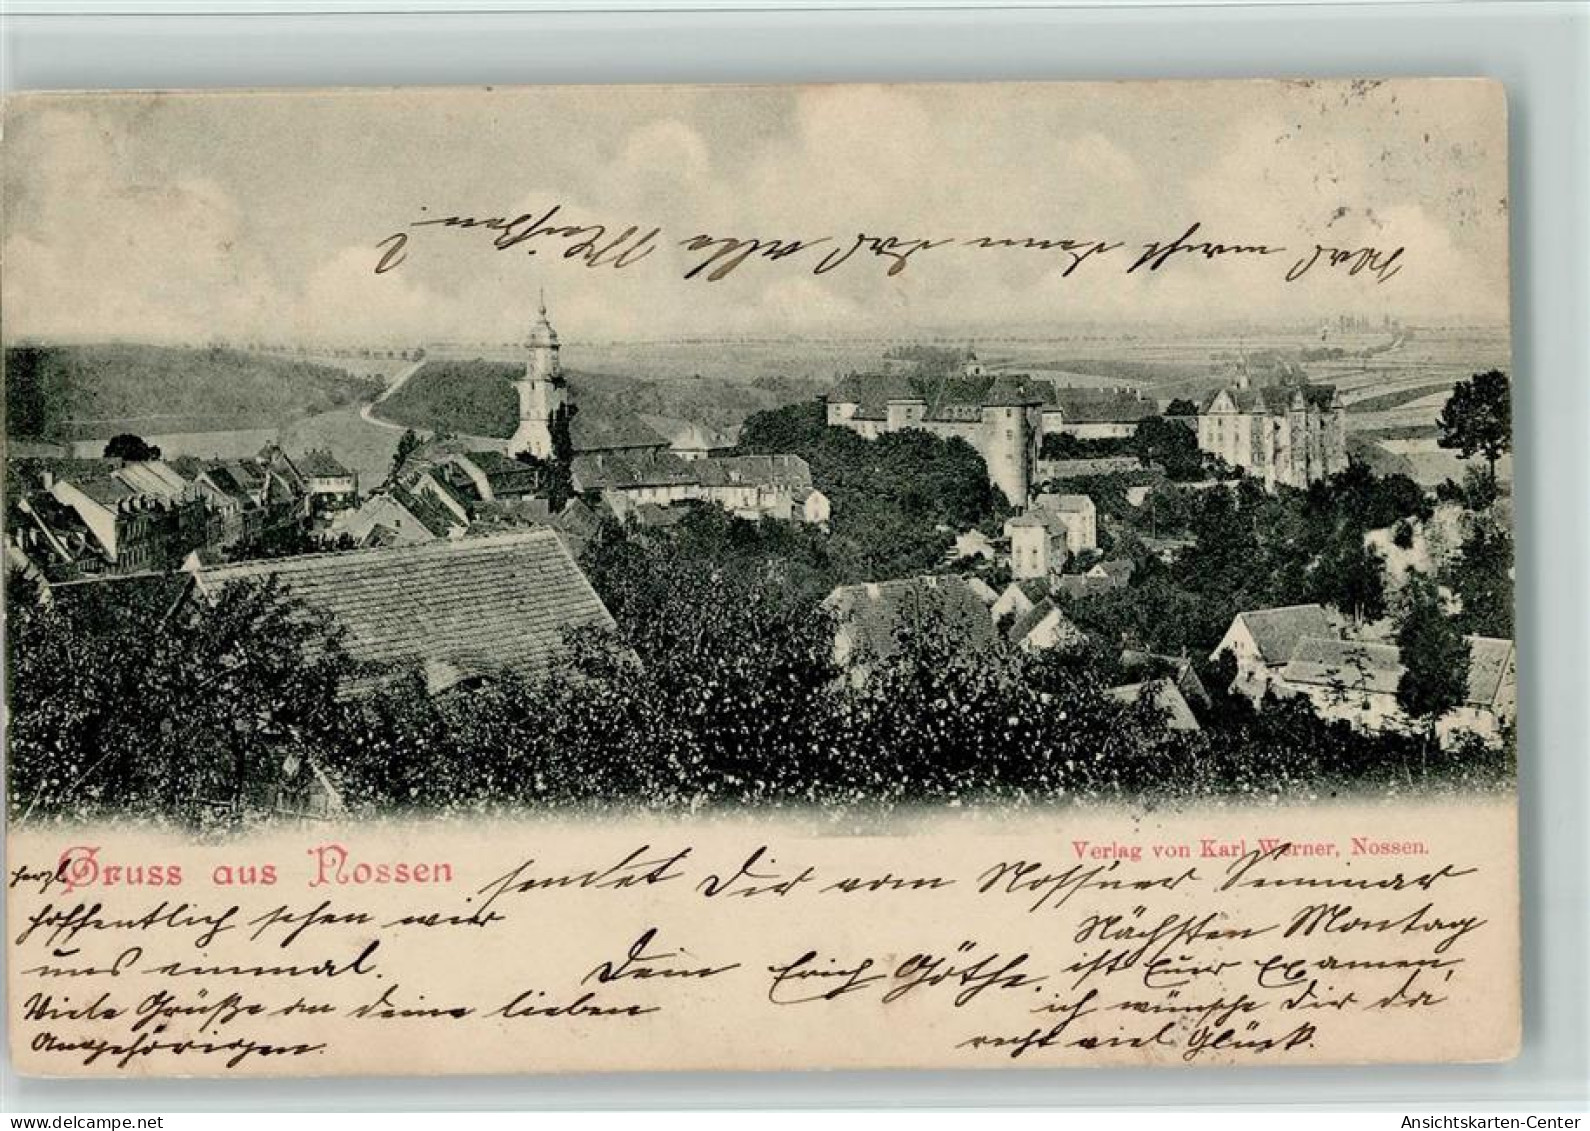 Was macht denn das alte Meißen?
Verlag von Karl Werner, Nossen.
herzl. Gruss aus Nossen sendet Dir vom Nossner Seminar
Dein Erich Göthe.
hoffentlich sehen wir
uns einmal.
Viele Grüße an deine lieben
Angehörigen.
Nächsten Montag
ist Euer Examen,
ich wünsche Dir da
recht viel Glück.
delcampe.net
Ansichtskarten-Center